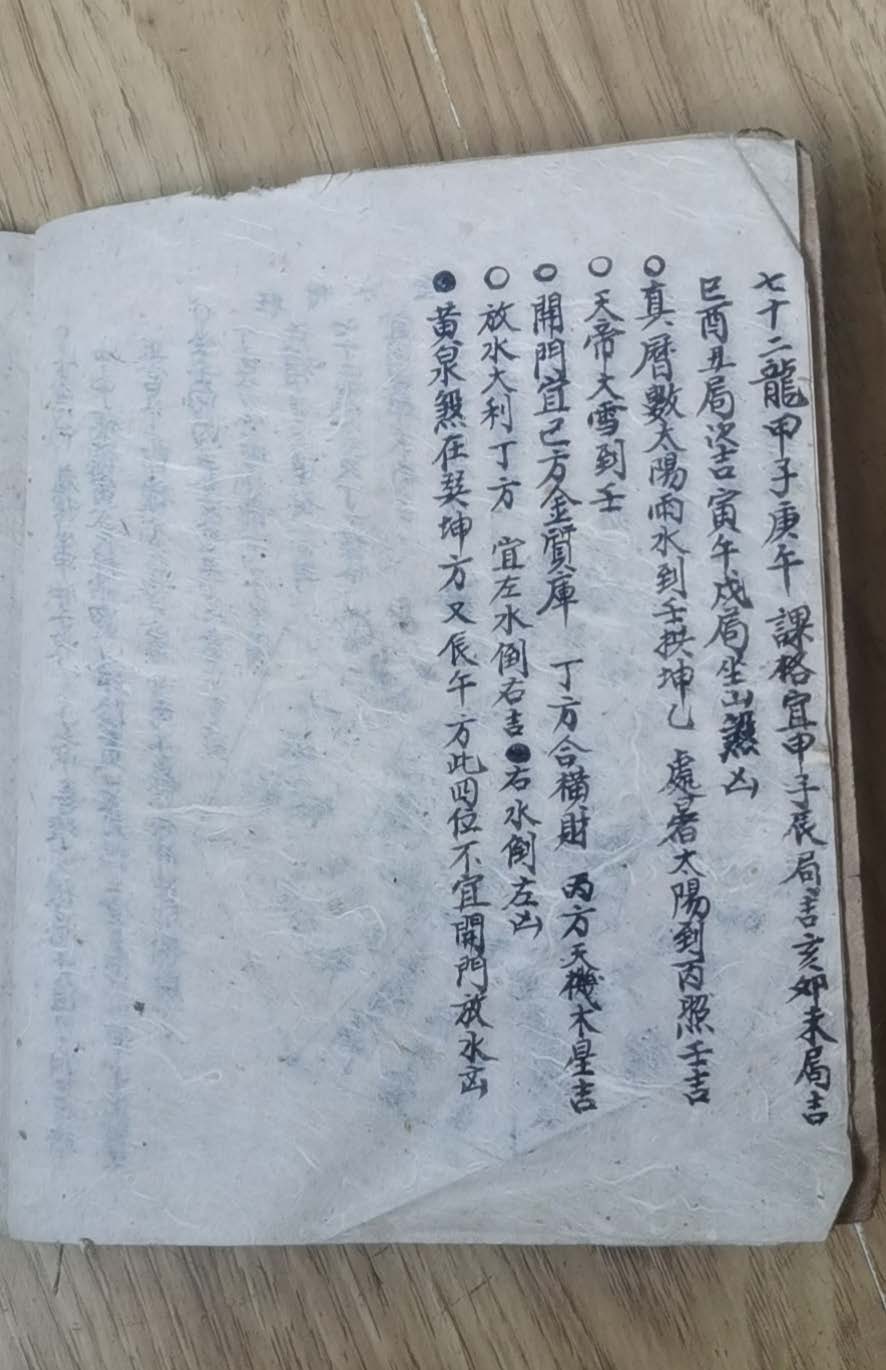 七十二龍甲子庚午 課格宜甲子辰局吉亥卯未局吉
巳酉丑局次吉寅午戌局坐山煞凶
○真曆數太陽雨水到壬拱坤乙 處暑太陽到丙照壬吉
○天帝大雪到壬
○開門宜己方金質庫 丁方合橫財 丙方天機木星吉
○放水大利丁方 宜左水倒右吉●右水倒左凶
●黃泉煞在巽坤方又辰午方此四位不宜開門放水凶